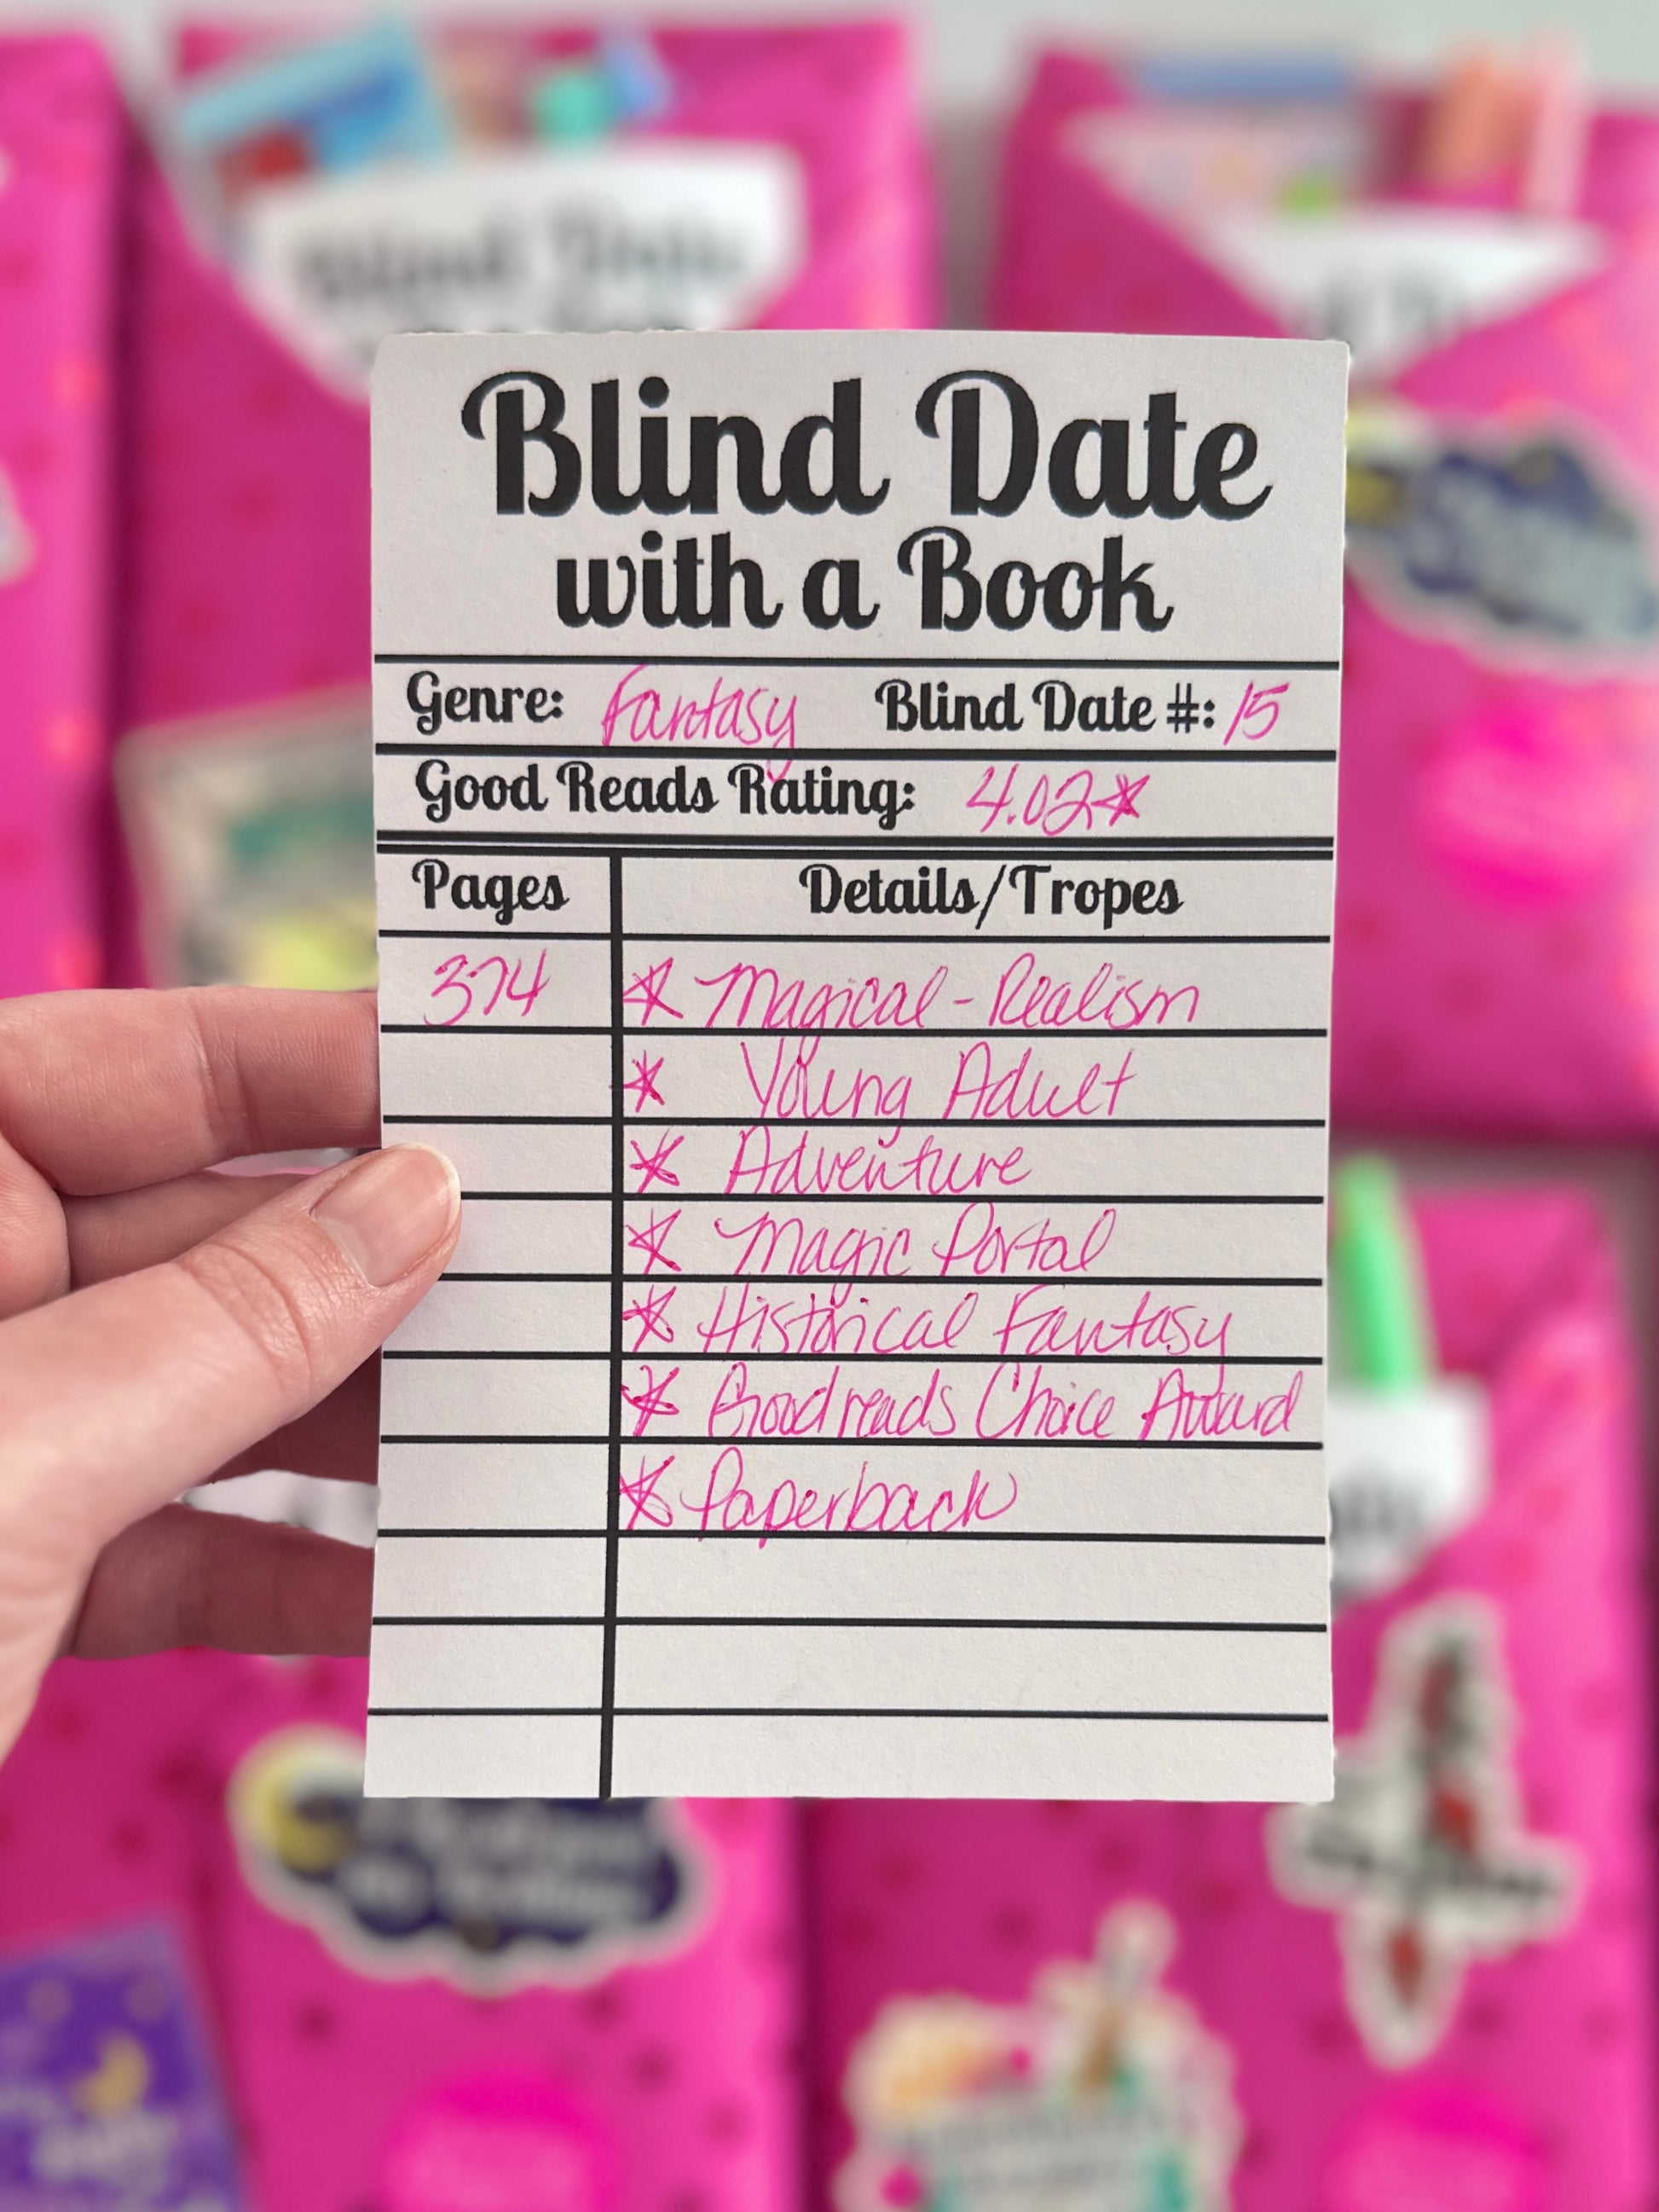 Blind Date
Blind Date
with a Book
Genre: Fantasy Blind Date #: 15
Good Reads Rating: 4.02★
Pages Details/Tropes
374 ★ Magical-Realism
★ Young Adult
★ Adventure
★ Magic Portal
★ Historical Fantasy
★ Goodreads Choice Award
★ Paperback